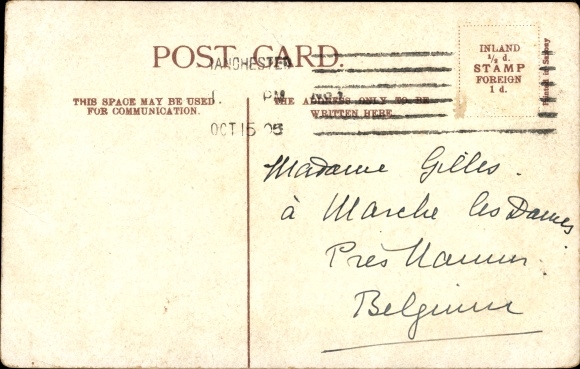 POST CARD.
INLAND
½ d.
STAMP
FOREIGN
1 d.
Printed in Saxony
MANCHESTER
1 PM
OCT 15 05
THIS SPACE MAY BE USED
FOR COMMUNICATION.
THE ADDRESS ONLY TO BE
WRITTEN HERE.
Madame Gilles.
à Marche les Dames
Près Namur.
Belgium